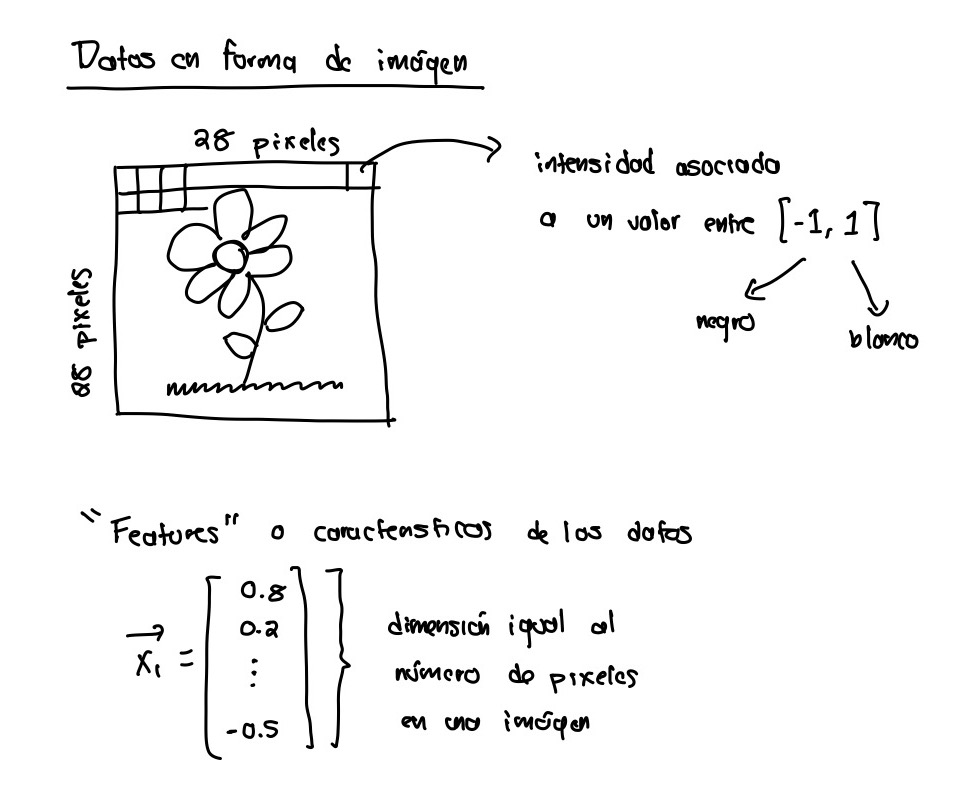 Datos en forma de imágen
28 pixeles
28 pixeles
intensidad asociado
a un valor entre [-1, 1]
negro
blanco
"Features" o características de los datos
x₁ = [0.8
0.2
⋮
-0.5]
dimensión igual al
número de pixeles
en una imágen